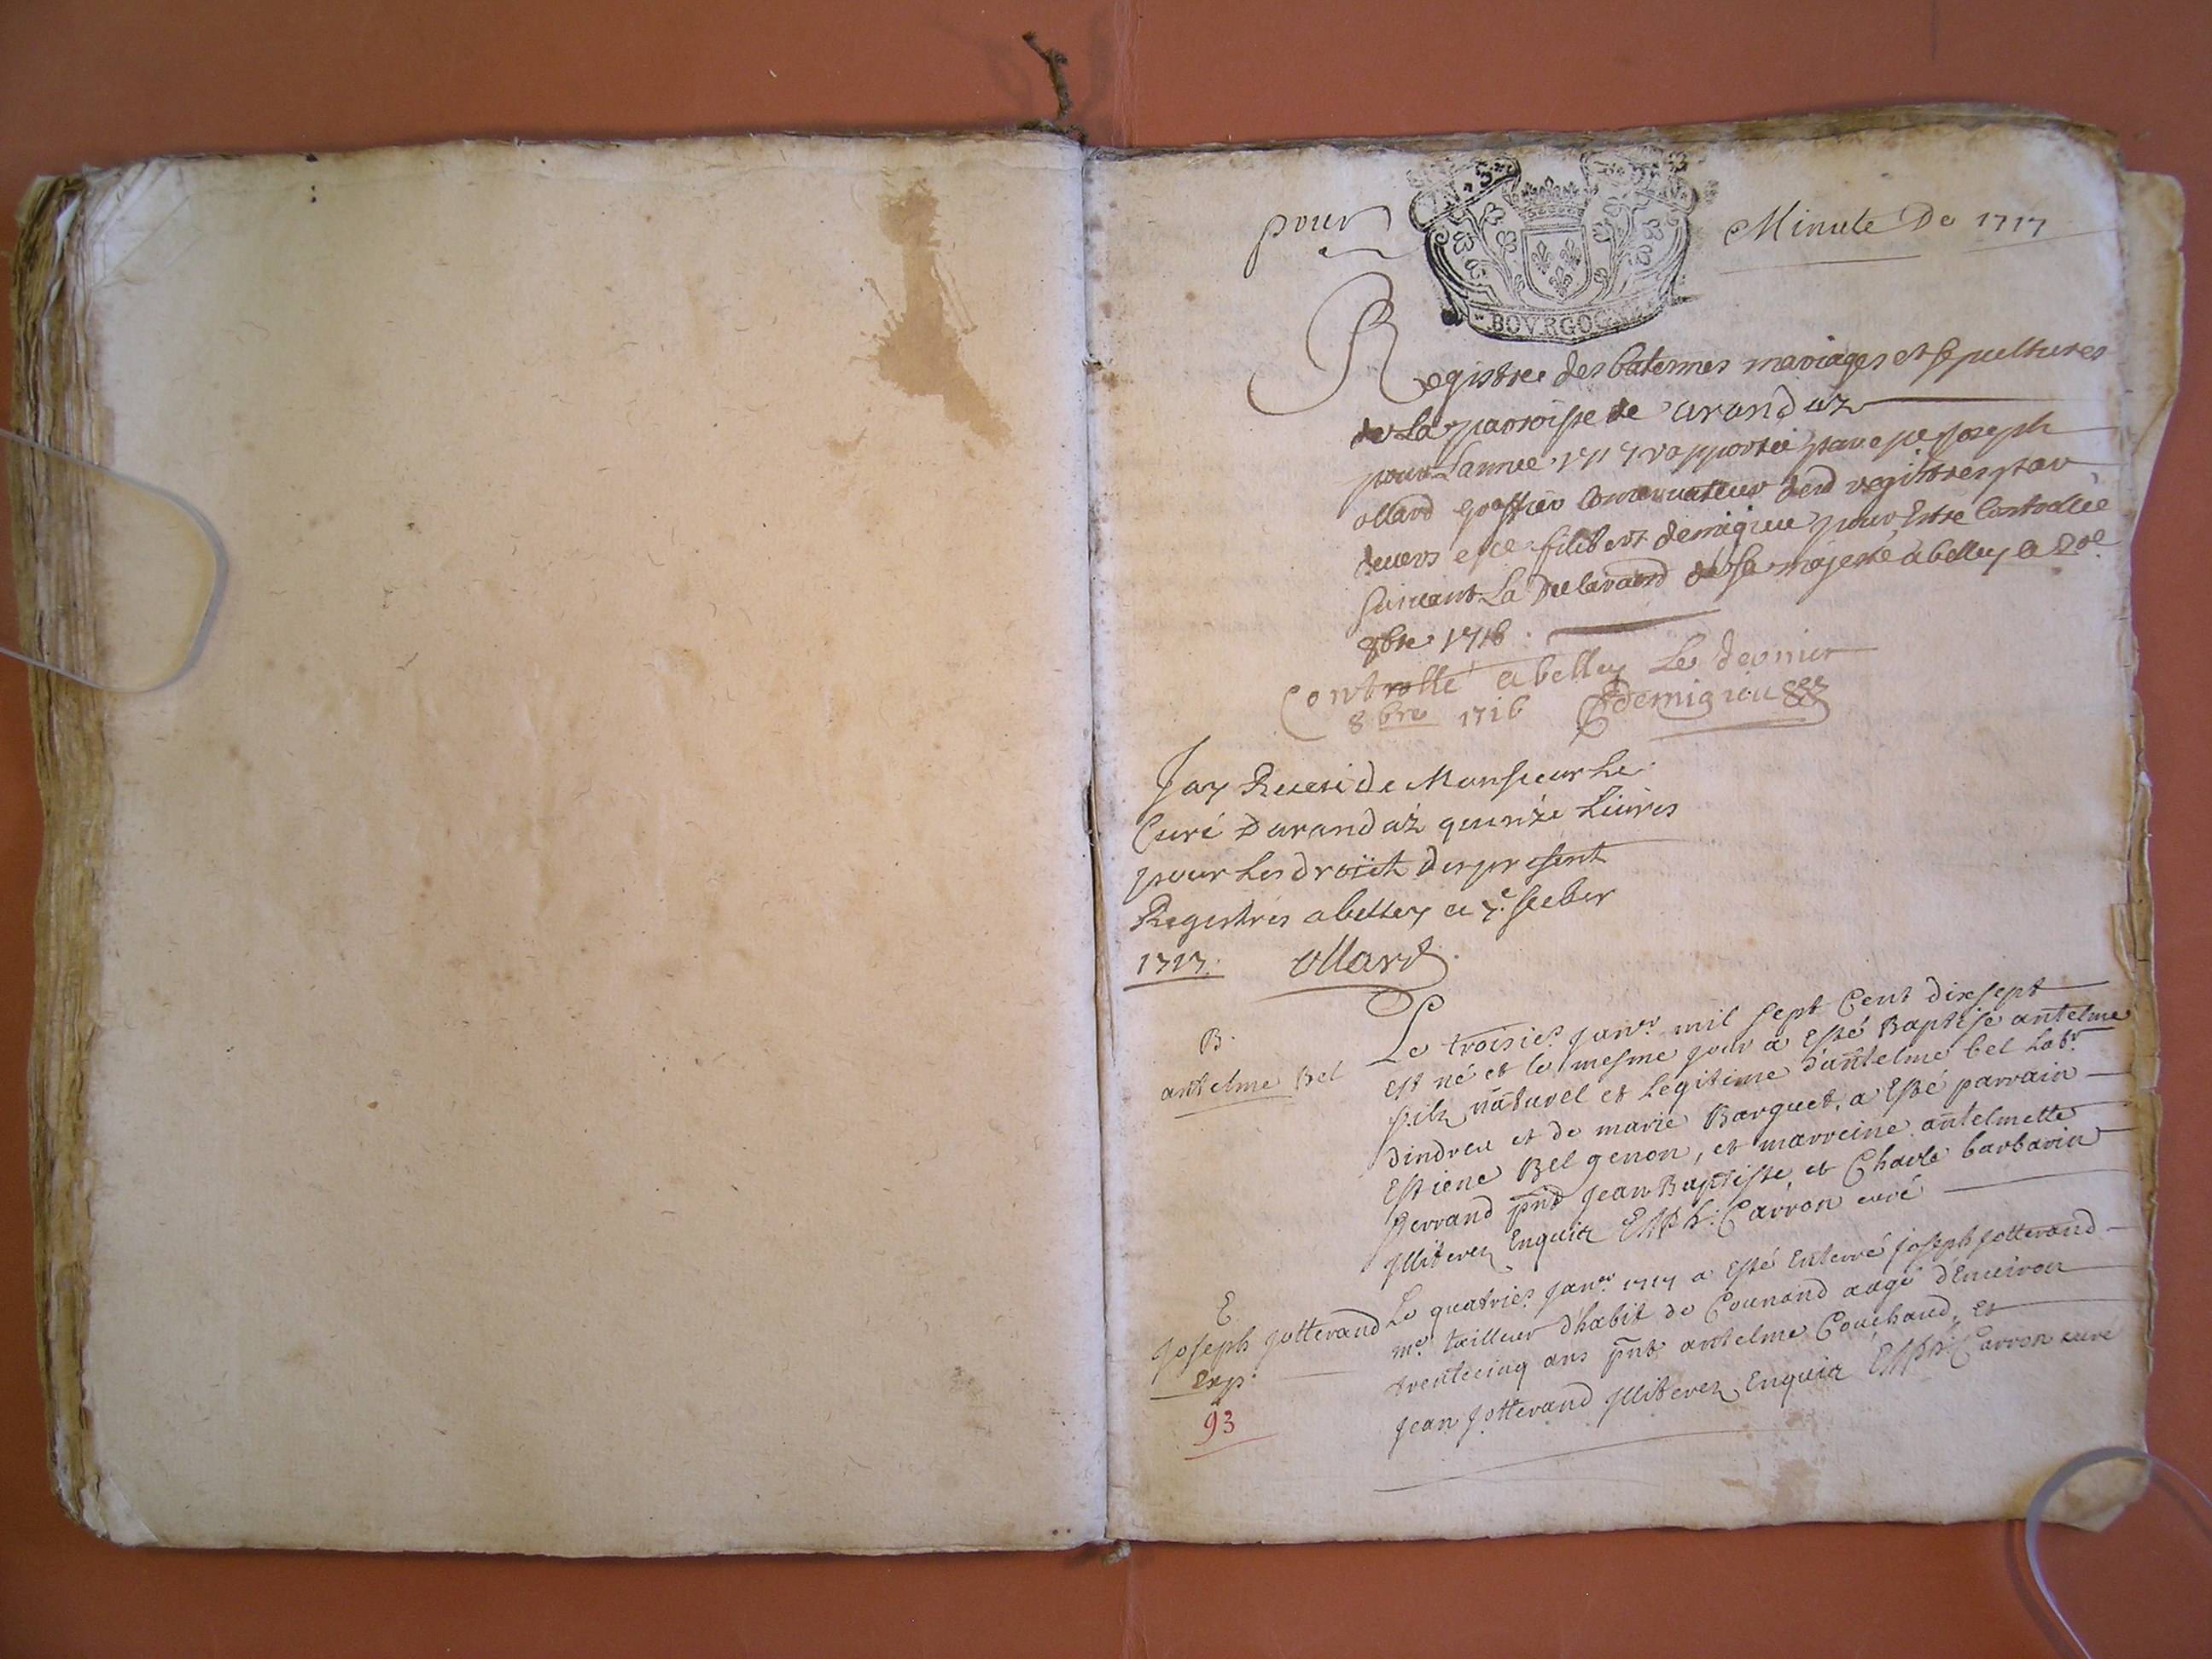 pour Minute De 1717
BOVRGOGNE
Registre des batesmes mariages et sepultures
de La parroisse de arandaz
pour Lannee 1717 par Joseph
ollard greffier Conservateur desd registres par
devers filibert demigieu pour Estre
suivant La declaraon de sa majesté a belley ce 20e
8bre 1716
Controllé a belley Le dernier
8bre 1716 Demigieu
Jay Receu de Monsieur Le
Curé Darandaz quinze Livres
pour Les droict des present
Registres a belley ce 7e
1717. ollard
Le troisie. janer. mil sept Cent dixsept
B.
antelme bel
Est né et le mesme jour a Esté Baptisé antelme
fils naturel et Legitime d'antelme bel Labr.
Dindreu et de marie Barquet, a Esté parrain
Estiene Bel genon, et marreine antelmette
ferrand pnt Jean Baptiste et Charle barbarin
jlliterez Enquis Carron curé
E
Joseph jotterand
Exp.
93
Le quatrie. janer. 1717 a Esté Enterré joseph jotterand
me. tailleur d'habit de Counand aagé d'Environ
trentecinq ans pnt antelme Couchaud, et
jean jotterand jlliterez Enquis Carron curé